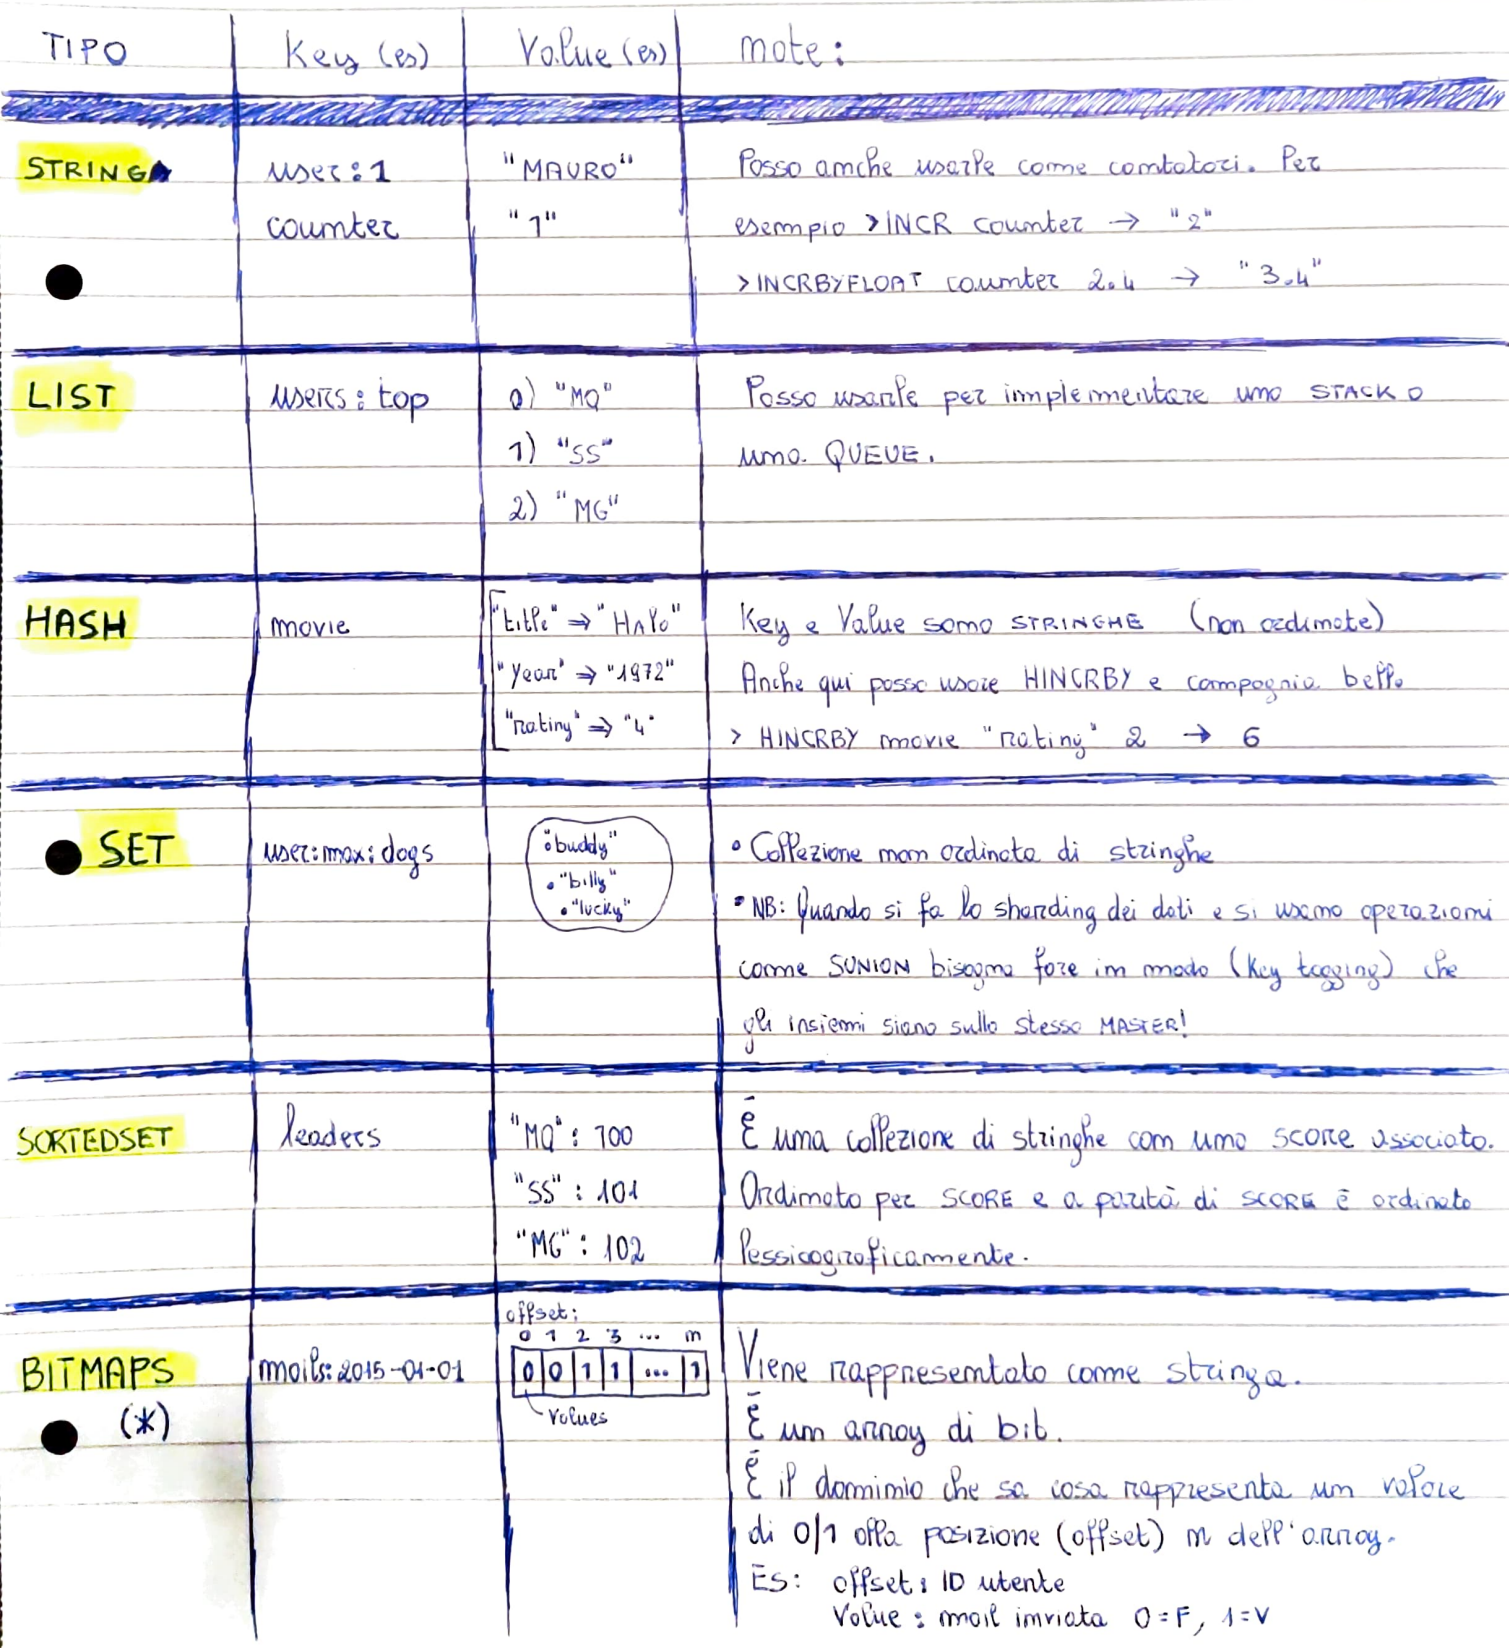 TIPO Key (es) Value (es) note:
STRING user:1 "MAURO" Posso anche usarle come contatori. Per
counter "1" esempio >INCR counter → "2"
>INCRBYFLOAT counter 2.4 → "3.4"
LIST users:top 0) "MQ" Posso usarle per implementare uno STACK o
1) "SS" una QUEUE.
2) "MG"
HASH movie "title" ⇒ "Halo" Key e Value sono STRINGHE (non ordinate)
"year" ⇒ "1972" Anche qui posso usare HINCRBY e compagnia bella
"rating" ⇒ "4" > HINCRBY movie "rating" 2 → 6
SET user:max:dogs • "buddy" • Collezione non ordinata di stringhe
• "billy"
• "lucky" • NB: Quando si fa lo sharding dei dati e si usano operazioni
come SUNION bisogna fare in modo (key tagging) che
gli insiemi siano sullo stesso MASTER!
SORTEDSET leaders "MQ" : 100 È una collezione di stringhe con uno score associato.
"SS" : 101 Ordinato per SCORE e a parità di SCORE è ordinato
"MG" : 102 lessicograficamente.
offset:
0 1 2 3 ... n
BITMAPS mails:2015-01-01 0 0 1 1 ... 1 Viene rappresentato come stringa.
values
(*) È un array di bit.
È il dominio che sa cosa rappresenta un valore
di 0/1 alla posizione (offset) n dell'array.
ES: offset: ID utente
Value: mail inviata 0=F, 1=V